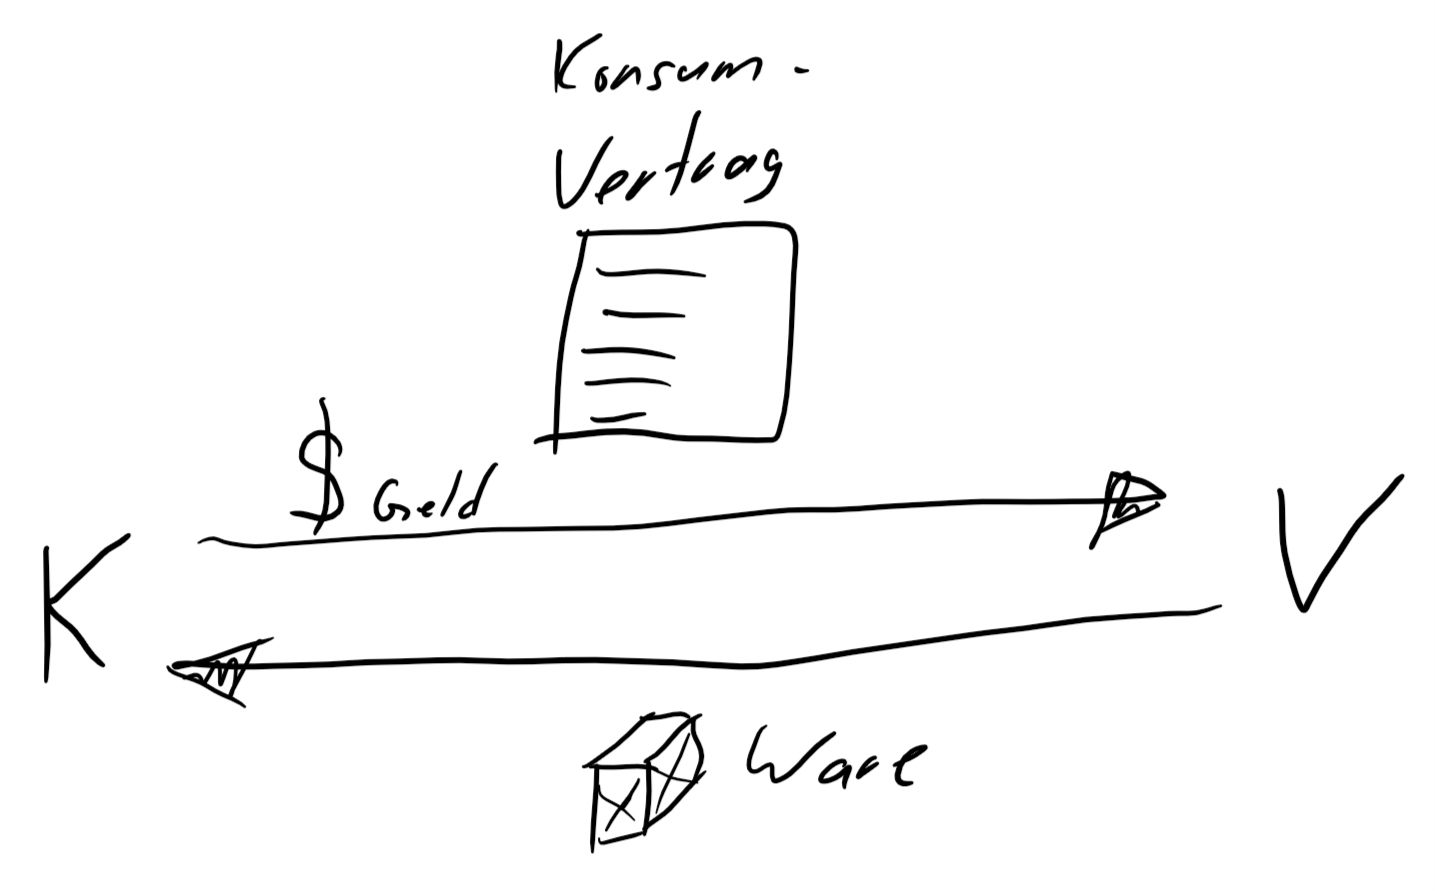 Konsum-
Vertrag
$ Geld
K
V
Ware